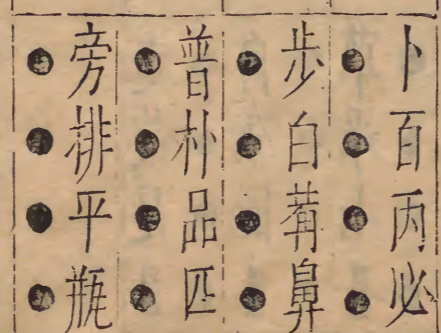 卜百丙必
●●●●
步白萆鼻
●●●●
普朴品匹
●●●●
旁排平瓶
●●●●